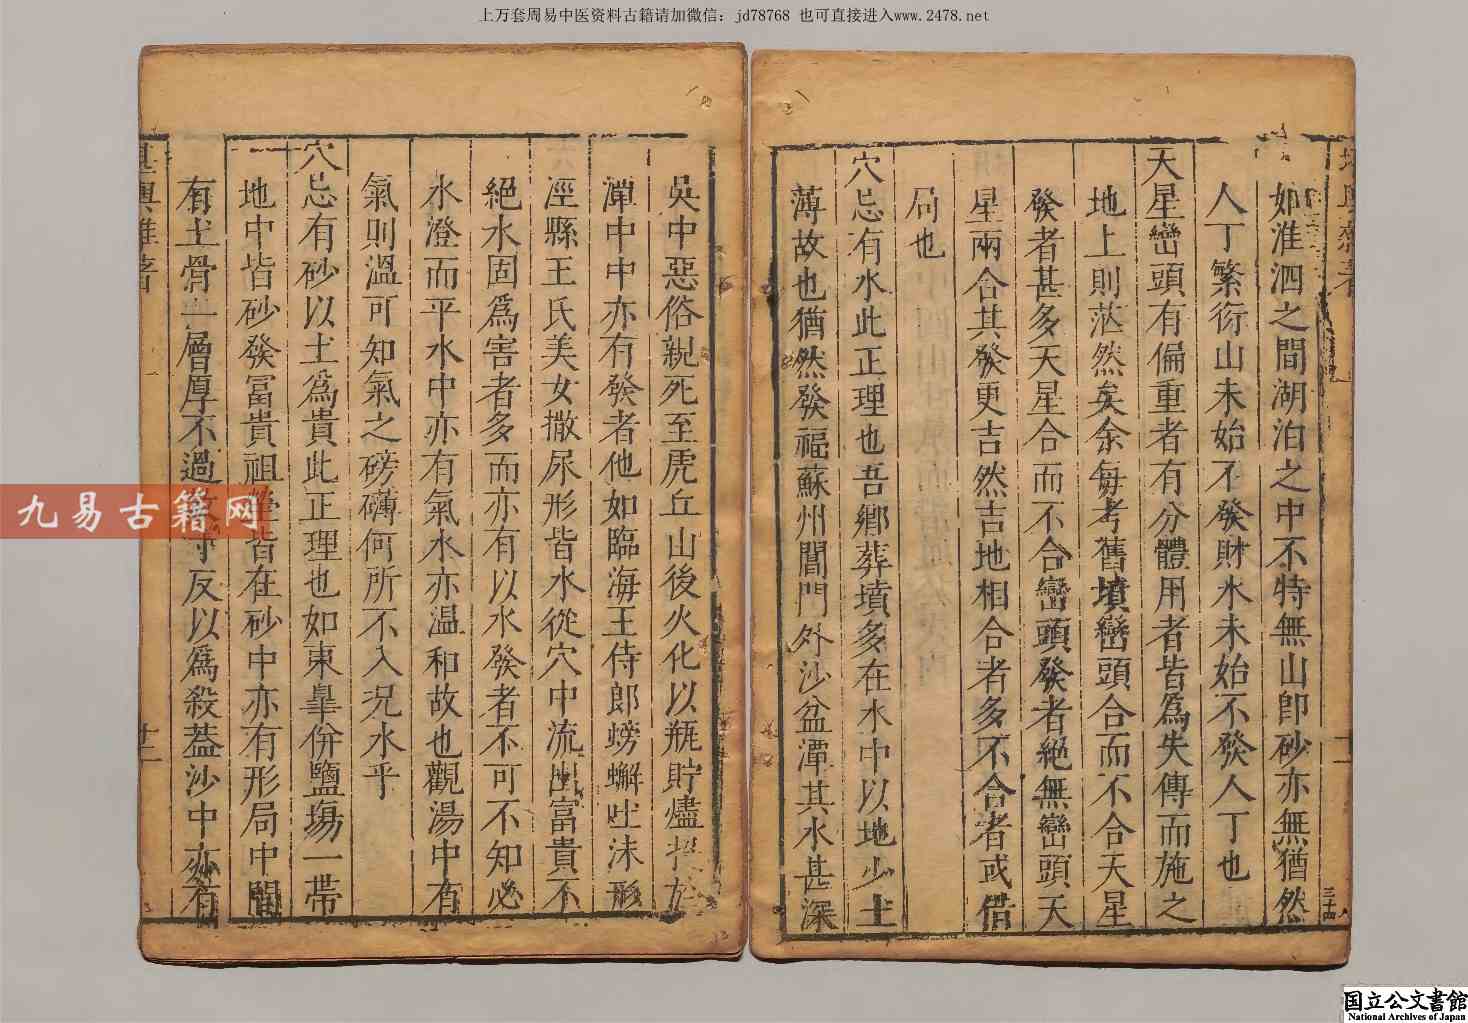 上万套周易中医资料古籍请加微信：jd78768 也可直接进入www.2478.net
如淮泗之間湖泊之中不特無山卽砂亦無猶然
人丁繁衍山未始不發財水未始不發人丁也
天星巒頭有偏重者有分體用者皆爲失傳而施之
地上則茫然矣余每考舊墳巒頭合而不合天星
發者甚多天星合而不合巒頭發者絕無巒頭天
星兩合其發更吉然吉地相合者多不合者或借
局也
穴忌有水此正理也吾鄉葬墳多在水中以地少土
薄故也猶然發福蘇州閶門外沙盆潭其水甚深
吳中惡俗親死至虎丘山後火化以瓶貯燼
潭中中亦有發者他如臨海王侍郎螃蠏吐沫形
涇縣王氏美女撒尿形皆水從穴中流出富貴不
絕水固爲害者多而亦有以水發者不可不知必
水澄而平水中亦有氣水亦温和故也觀湯中有
氣則溫可知氣之磅礴何所不入况水乎
穴忌有砂以土爲貴此正理也如東臯份鹽塲一帶
地中皆砂發富貴祖塋皆在砂中亦有形局中間
有土骨一層厚不過寸反以爲殺葢沙中亦有
堪輿雜著
廿一
九易古籍网
国立公文書館
National Archives of Japan